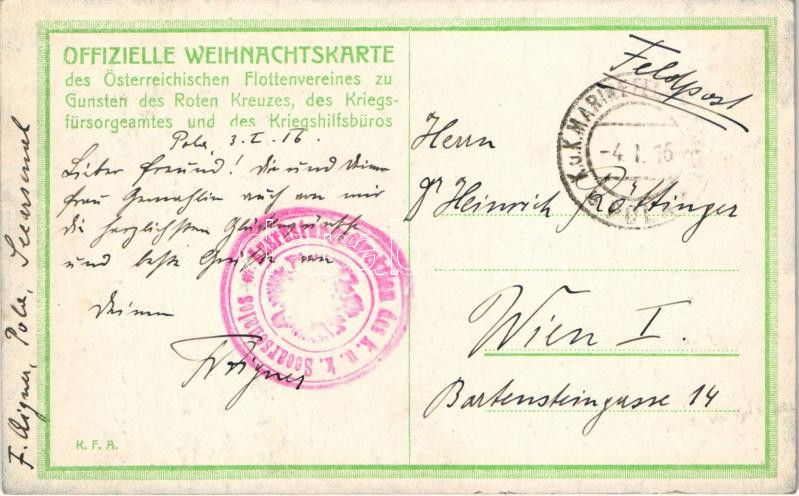 OFFIZIELLE WEIHNACHTSKARTE
des Österreichischen Flottenvereines zu
Gunsten des Roten Kreuzes, des Kriegs-
fürsorgeamtes und des Kriegshilfsbüros
Pola, 3. I. 16.
Lieber Freund! Dir und Deiner
Frau Gemahlin auch von mir
die herzlichsten Glückwünsche
und beste Grüße von
Deinem
F. Aigner
K. F. A.
F. Aigner, Pola, Seearsenal
Feldpost
K.u.K. MARINE
-4. I. 16
POLA
des k. u. k. Seearsenales
Herrn
Dr Heinrich Röttinger
Wien I.
Bartensteingasse 14